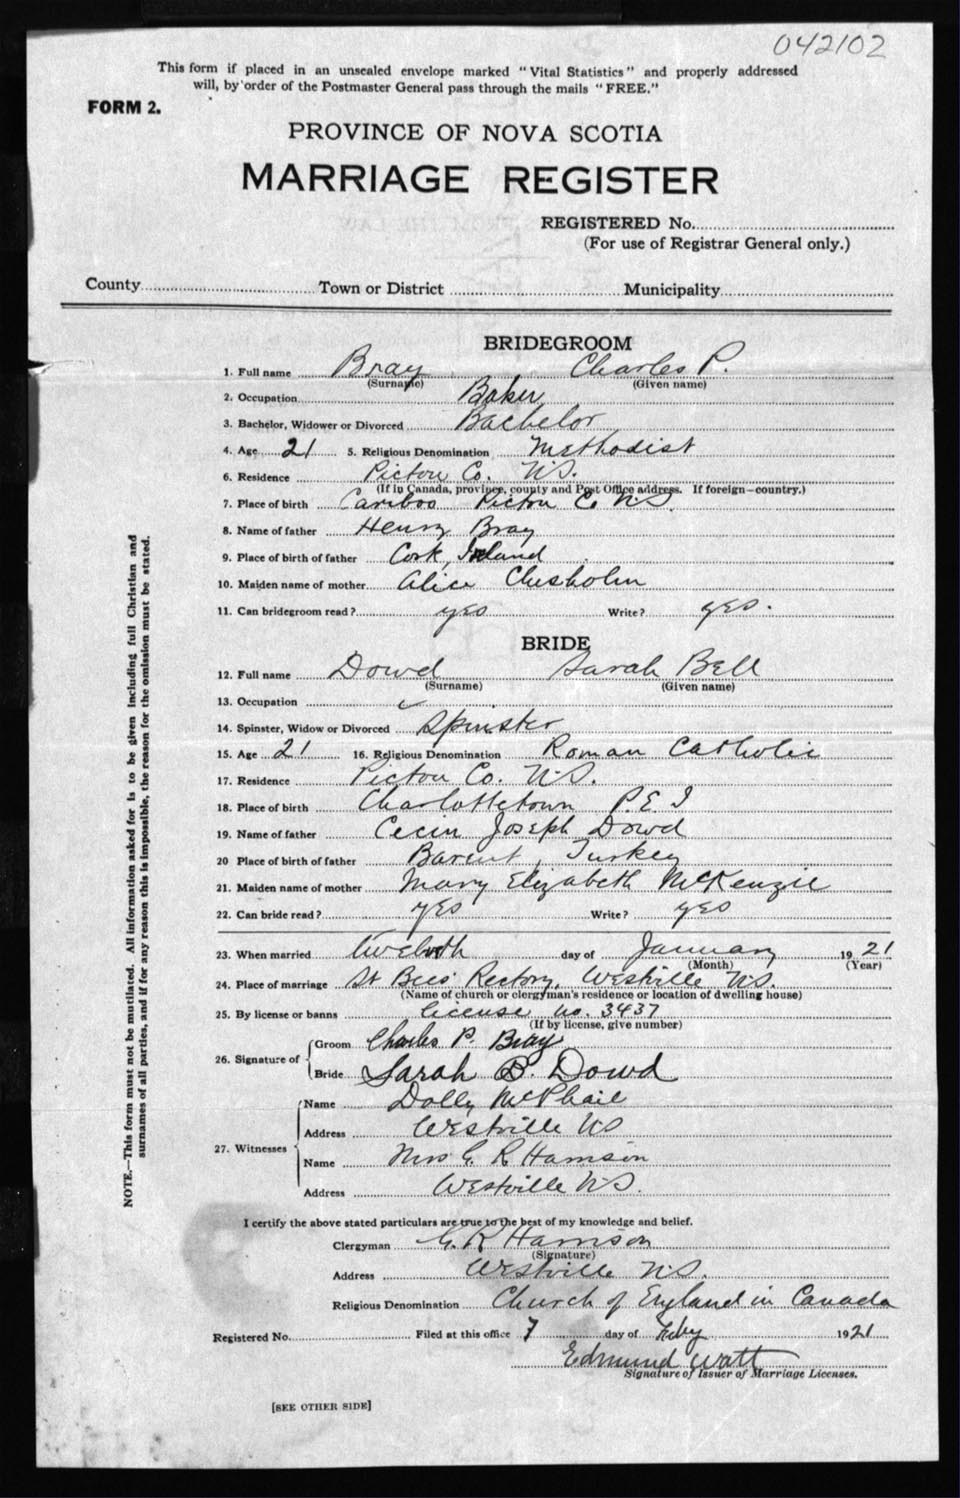 042102
This form if placed in an unsealed envelope marked "Vital Statistics" and properly addressed
will, by order of the Postmaster General pass through the mails "FREE."
FORM 2.
PROVINCE OF NOVA SCOTIA
MARRIAGE REGISTER
REGISTERED No.
(For use of Registrar General only.)
County Town or District Municipality
BRIDEGROOM
1. Full name Bray Charles P.
(Surname) (Given name)
2. Occupation Baker
3. Bachelor, Widower or Divorced Bachelor
4. Age 21 5. Religious Denomination Methodist
6. Residence Pictou Co. N.S.
(If in Canada, province, county and Post Office address. If foreign—country.)
7. Place of birth Cariboo Pictou Co N.S.
8. Name of father Henry Bray
9. Place of birth of father Cork, Ireland
10. Maiden name of mother Alice Chisholm
11. Can bridegroom read? yes Write? yes.
BRIDE
12. Full name Dowd Sarah Bell
(Surname) (Given name)
13. Occupation
14. Spinster, Widow or Divorced Spinster
15. Age 21 16. Religious Denomination Roman Catholic
17. Residence Pictou Co. N.S.
18. Place of birth Charlottetown P E I
19. Name of father Joseph Dowd
20 Place of birth of father Barent, Turkey
21. Maiden name of mother Mary Elizabeth McKenzie
22. Can bride read? yes Write? yes
23. When married twelvth day of January 1921
(Month) (Year)
24. Place of marriage St Bees' Rectory, Westville N.S.
(Name of church or clergyman's residence or location of dwelling house)
25. By license or banns license no. 3437
(If by license, give number)
26. Signature of Groom Charles P. Bray
Bride Sarah B. Dowd
27. Witnesses Name Dolly McPhail
Address Westville NS
Name Mrs G. R Harrison
Address Westville N.S.
I certify the above stated particulars are true to the best of my knowledge and belief.
Clergyman G. R Harrison
(Signature)
Address Westville N.S.
Religious Denomination Church of England in Canada
Registered No. Filed at this office 7 day of Feby 1921
Edmund Watt
Signature of Issuer of Marriage Licenses.
[SEE OTHER SIDE]
NOTE.—This form must not be mutilated. All information asked for is to be given including full Christian and
surnames of all parties, and if for any reason this is impossible, the reason for the omission must be stated.